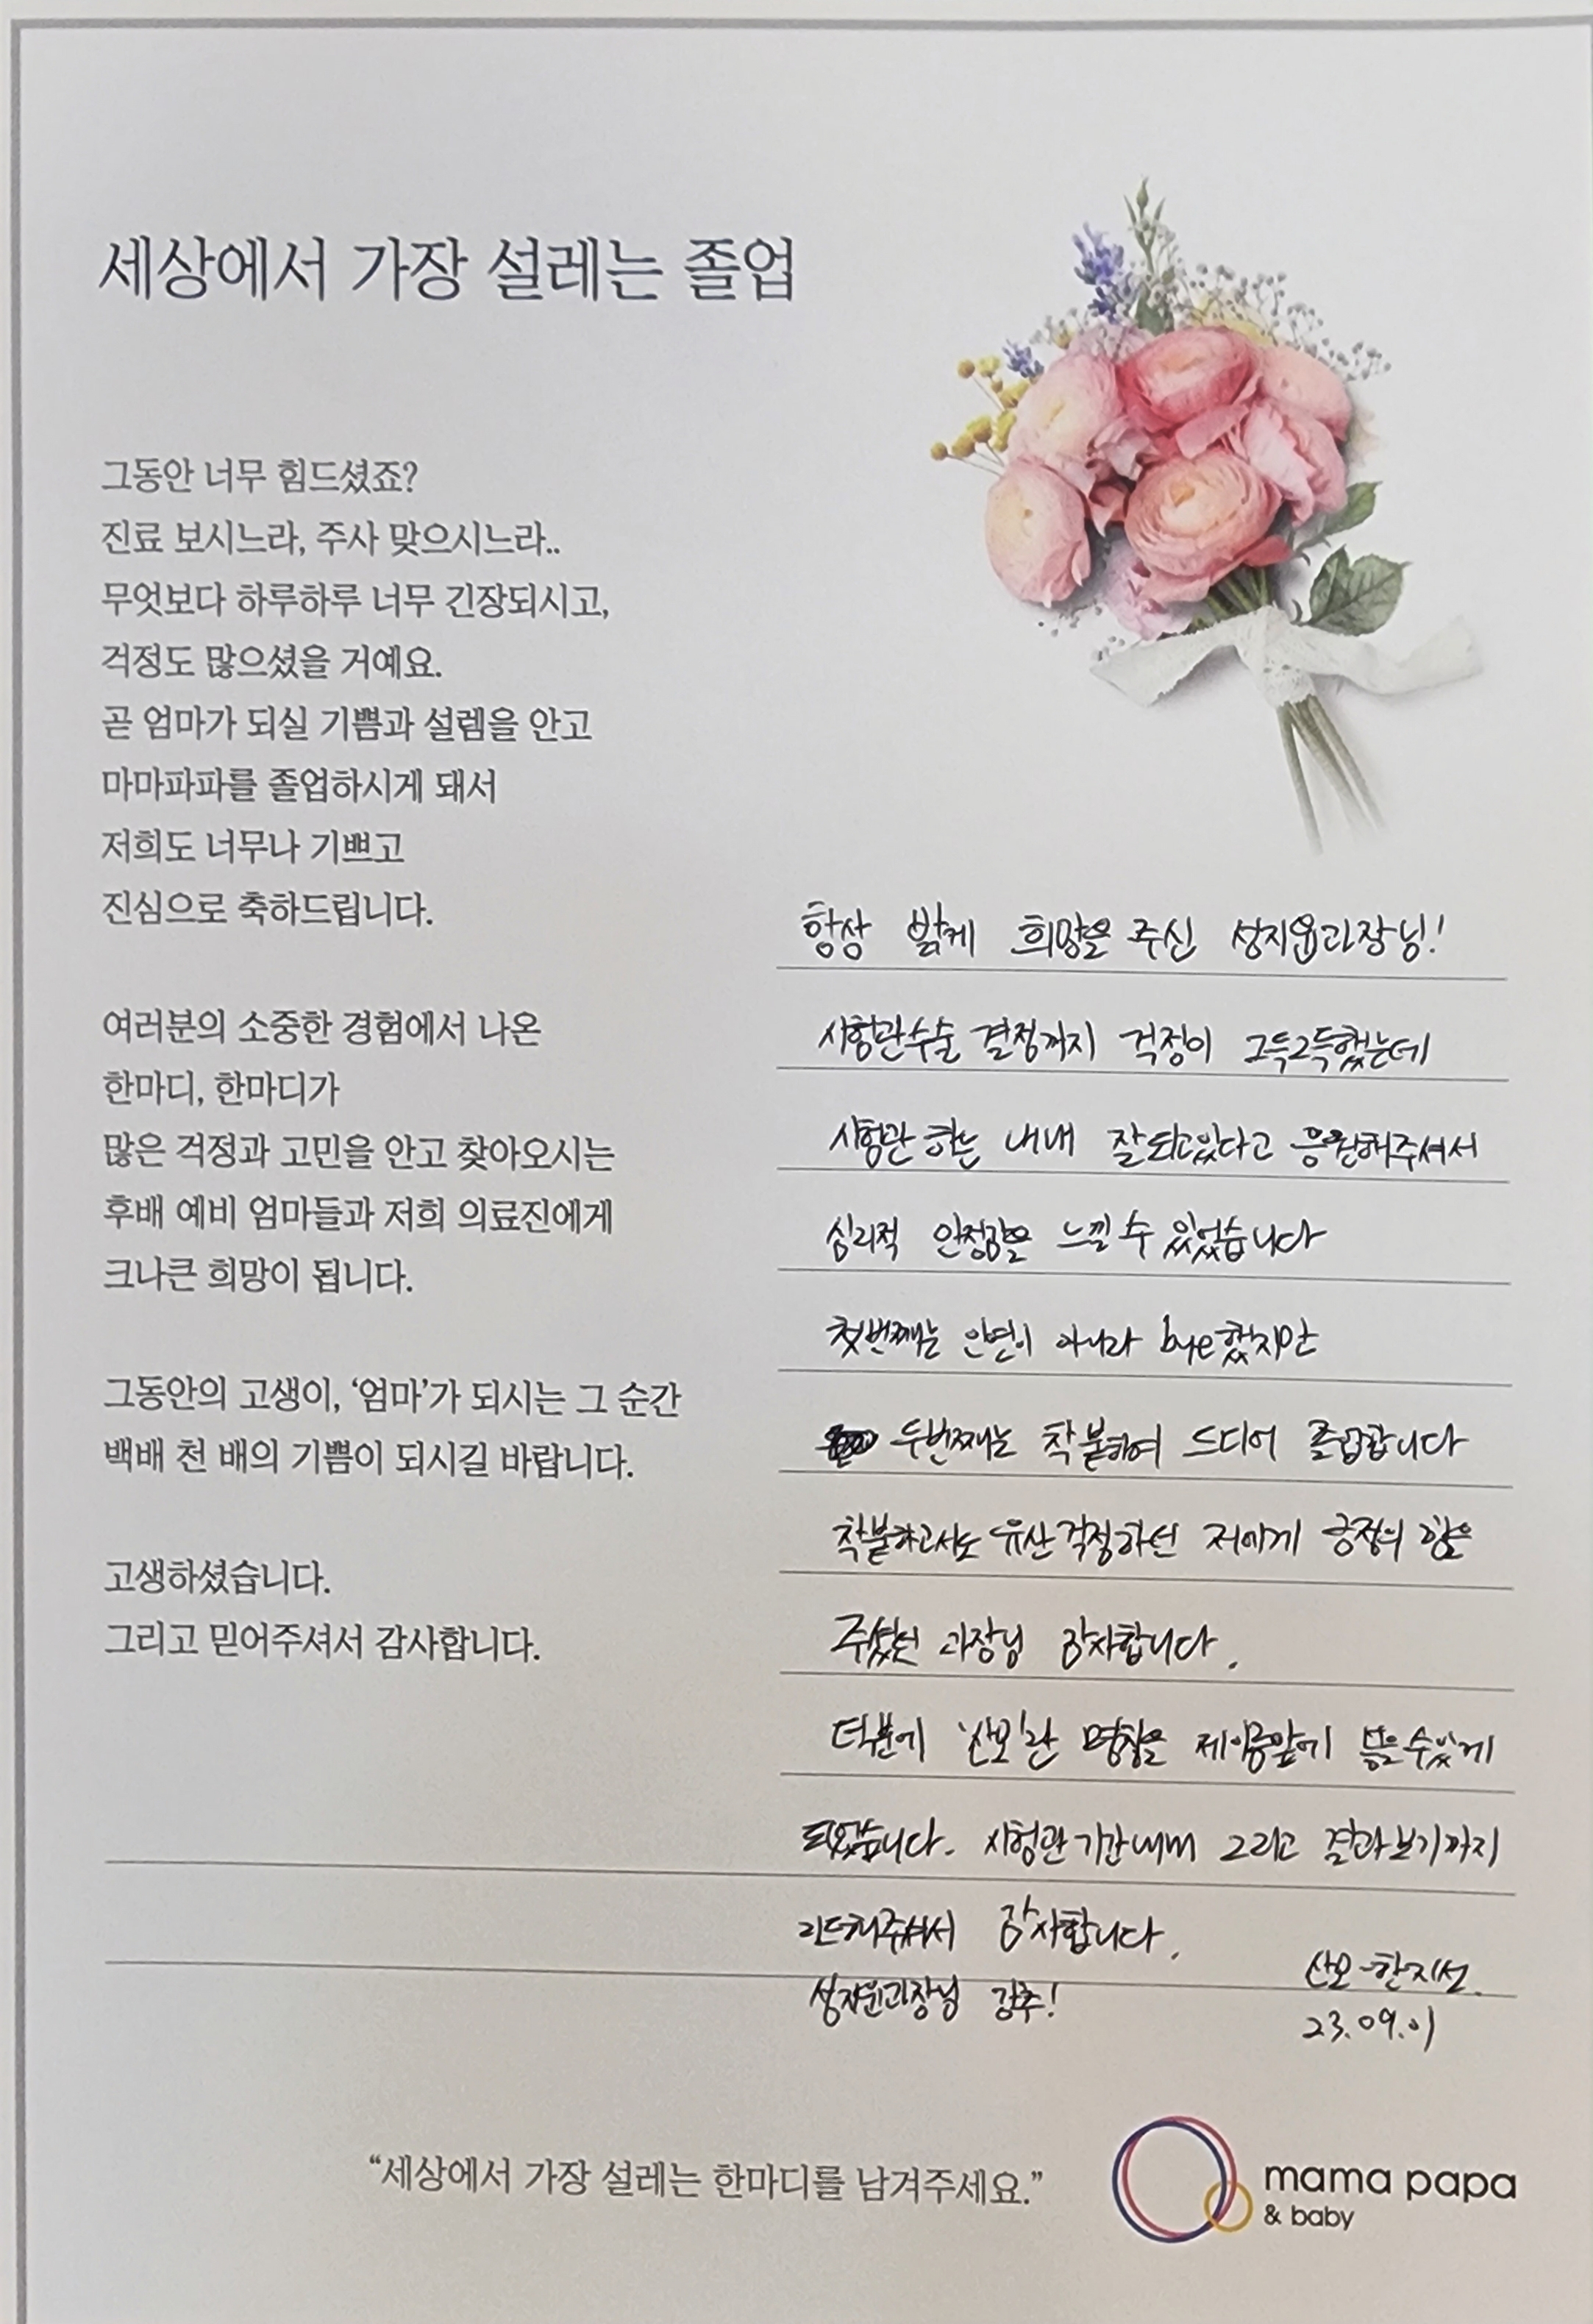 세상에서 가장 설레는 졸업
그동안 너무 힘드셨죠?
진료 보시느라, 주사 맞으시느라..
무엇보다 하루하루 너무 긴장되시고,
걱정도 많으셨을 거예요.
곧 엄마가 되실 기쁨과 설렘을 안고
마마파파를 졸업하시게 돼서
저희도 너무나 기쁘고
진심으로 축하드립니다.
여러분의 소중한 경험에서 나온
한마디, 한마디가
많은 걱정과 고민을 안고 찾아오시는
후배 예비 엄마들과 저희 의료진에게
크나큰 희망이 됩니다.
그동안의 고생이, ‘엄마’가 되시는 그 순간
백배 천 배의 기쁨이 되시길 바랍니다.
고생하셨습니다.
그리고 믿어주셔서 감사합니다.
항상 밝게 희망을 주신 성지윤과장님!
시험관수술 결정까지 걱정이 그득그득했는데
시험관 하는 내내 잘되고있다고 응원해주셔서
심리적 안정감을 느낄 수 있었습니다
첫번째는 인연이 아니라 bye했지만
두번째는 착붙하여 드디어 졸업합니다
착붙하고서도 유산걱정하던 저에게 긍정의 힘을
주셨던 과장님 감사합니다.
덕분에 '산모'란 명칭을 제이름앞에 붙을수있게
되었습니다. 시험관기간내내 그리고 결과보기까지
리드해주셔서 감사합니다.
성지윤과장님 강추!
산모-한지선.
23.09.01
“세상에서 가장 설레는 한마디를 남겨주세요.”
mama papa
& baby